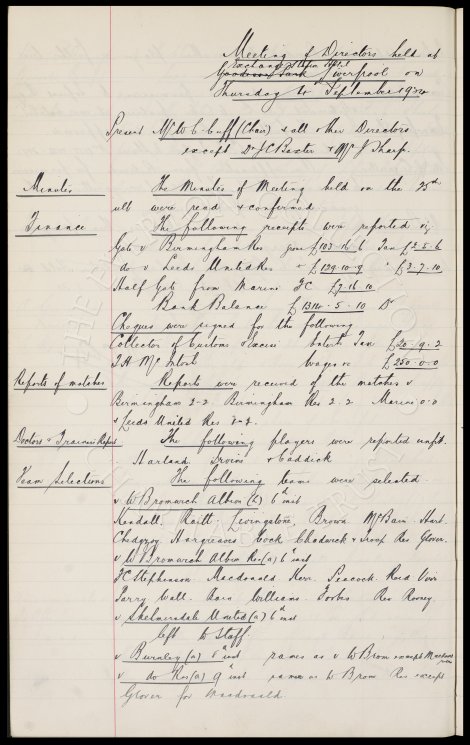 Meeting of Directors held at
Exchange Station Hotel
Goodison Park Liverpool on
Thursday 4th September 1924
Present Mr W C Cuff (Chair) & all other Directors
except Dr J C Baxter & Mr J Sharp.
Minutes
The Minutes of Meeting held on the 25th
ult were read & confirmed
Finance
The following receipts were reported viz
Gate v Birmingham Res £103.16.6 Tax £2.5.6
do v Leeds United Res £129.10.9 £3.7.10
Half Gate from Marine FC £7.16.10
Bank Balance £1314.5.10 Dr
Cheques were signed for the following
Collector of Customs & Excise Entertt Tax £20.9.2
T H McIntosh Wages £250.0.0
Reports of matches
Reports were received of the matches v
Birmingham 2-2 Birmingham Res 2-2 Marine 0-0
& Leeds United Res
Doctors & Trainers Report
The following players were reported unfit.
Harland Irvine & Caddick
Team Selections
The following teams were selected
v W Bromwich Albion (h) 6th inst
Kendall. Raitt Livingstone, Brown McBain Hart
Chedgzoy Hargreaves Cock Chadwick & Troup Res Glover.
v W Bromwich Albion Res (a) 6th inst
FC Stephenson. Macdonald Kerr. Peacock Reid Virr
Parry Wall. Bain Williams. Forbes Res Rooney
v Skelmersdale United (a) 6th inst
left to Staff.
v Burnley (a) 8th inst names as v W Brom except
v do Res (a) 9th inst names as W Brom Res except
Glover for Macdonald